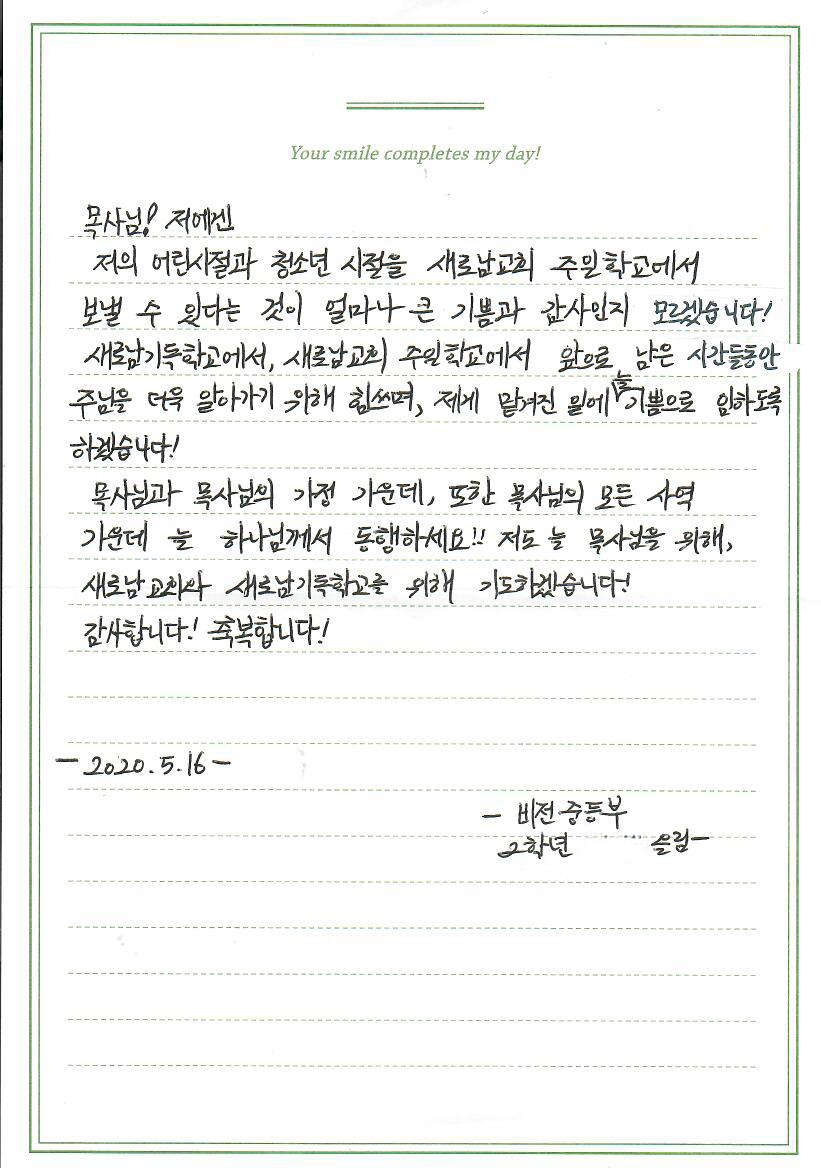 Your smile completes my day!
목사님! 저에겐
저의 어린시절과 청소년 시절을 새로남교회 주일학교에서
보낼 수 있다는 것이 얼마나 큰 기쁨과 감사인지 모르겠습니다!
새로남기독학교에서, 새로남교회 주일학교에서 앞으로 남은 시간들동안
주님을 더욱 알아가기 위해 힘쓰며, 제게 맡겨진 일에 늘 기쁨으로 임하도록
하겠습니다!
목사님과 목사님의 가정 가운데, 또한 목사님의 모든 사역
가운데 늘 하나님께서 동행하세요!! 저도 늘 목사님을 위해,
새로남교회와 새로남기독학교를 위해 기도하겠습니다!
감사합니다! 축복합니다!
- 2020.5.16 -
- 비전중등부
2학년 올림 -